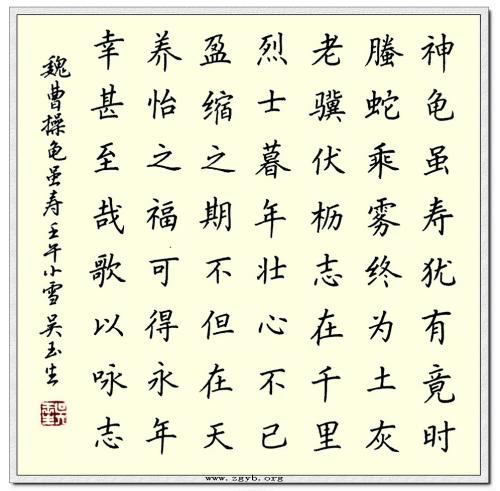 神龟虽寿犹有竟时
螣蛇乘雾终为土灰
老骥伏枥志在千里
烈士暮年壮心不已
盈缩之期不但在天
养怡之福可得永年
幸甚至哉歌以咏志
魏曹操龟虽寿壬午小雪吴玉生
www.zgyb.org